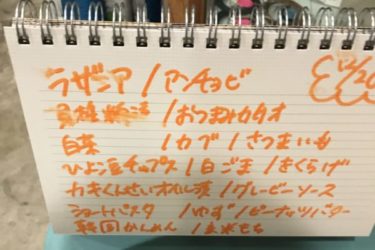 ラザニア / アンチョビ
12/20
/ おつまみカタオ
白菜 / カブ / さつまいも
ひよこ豆チップス / 白ごま / きくらげ
カキくんせいオイル漬 / グレービーソース
ショートパスタ / ゆず / ピーナッツバター
韓国かんめん / 玄米もち